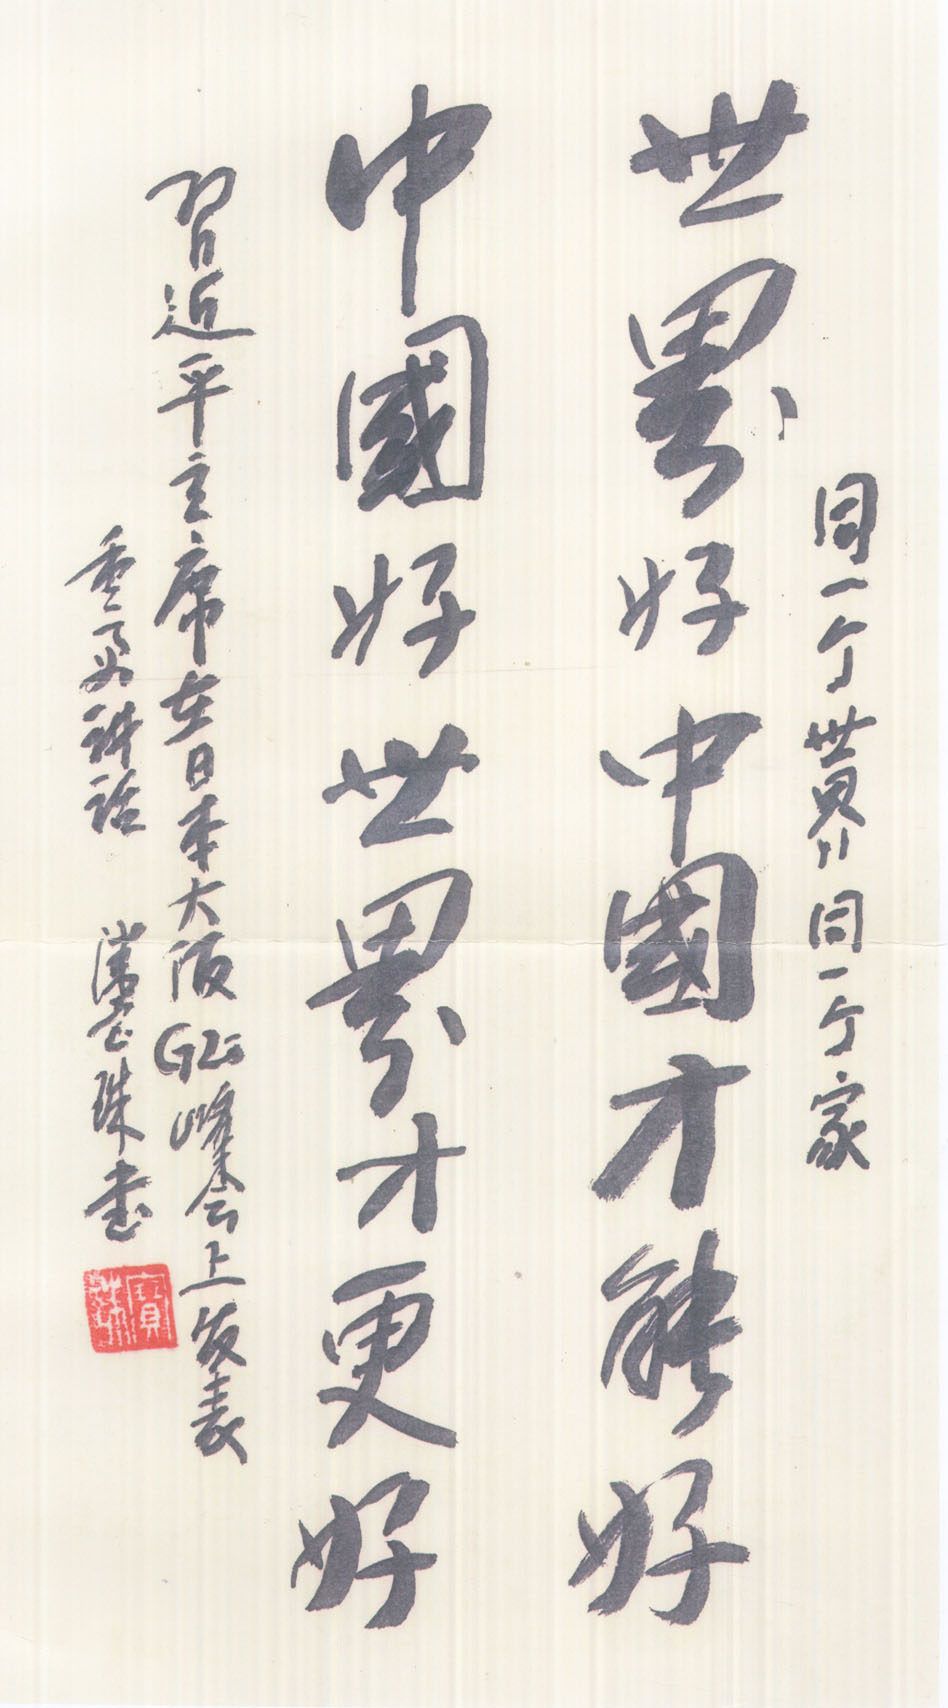 同一个世界同一个家
世界好中國才能好
中國好世界才更好
習近平主席在日本大阪G20峰会上发表
重要讲话 宝珠书
寶珠